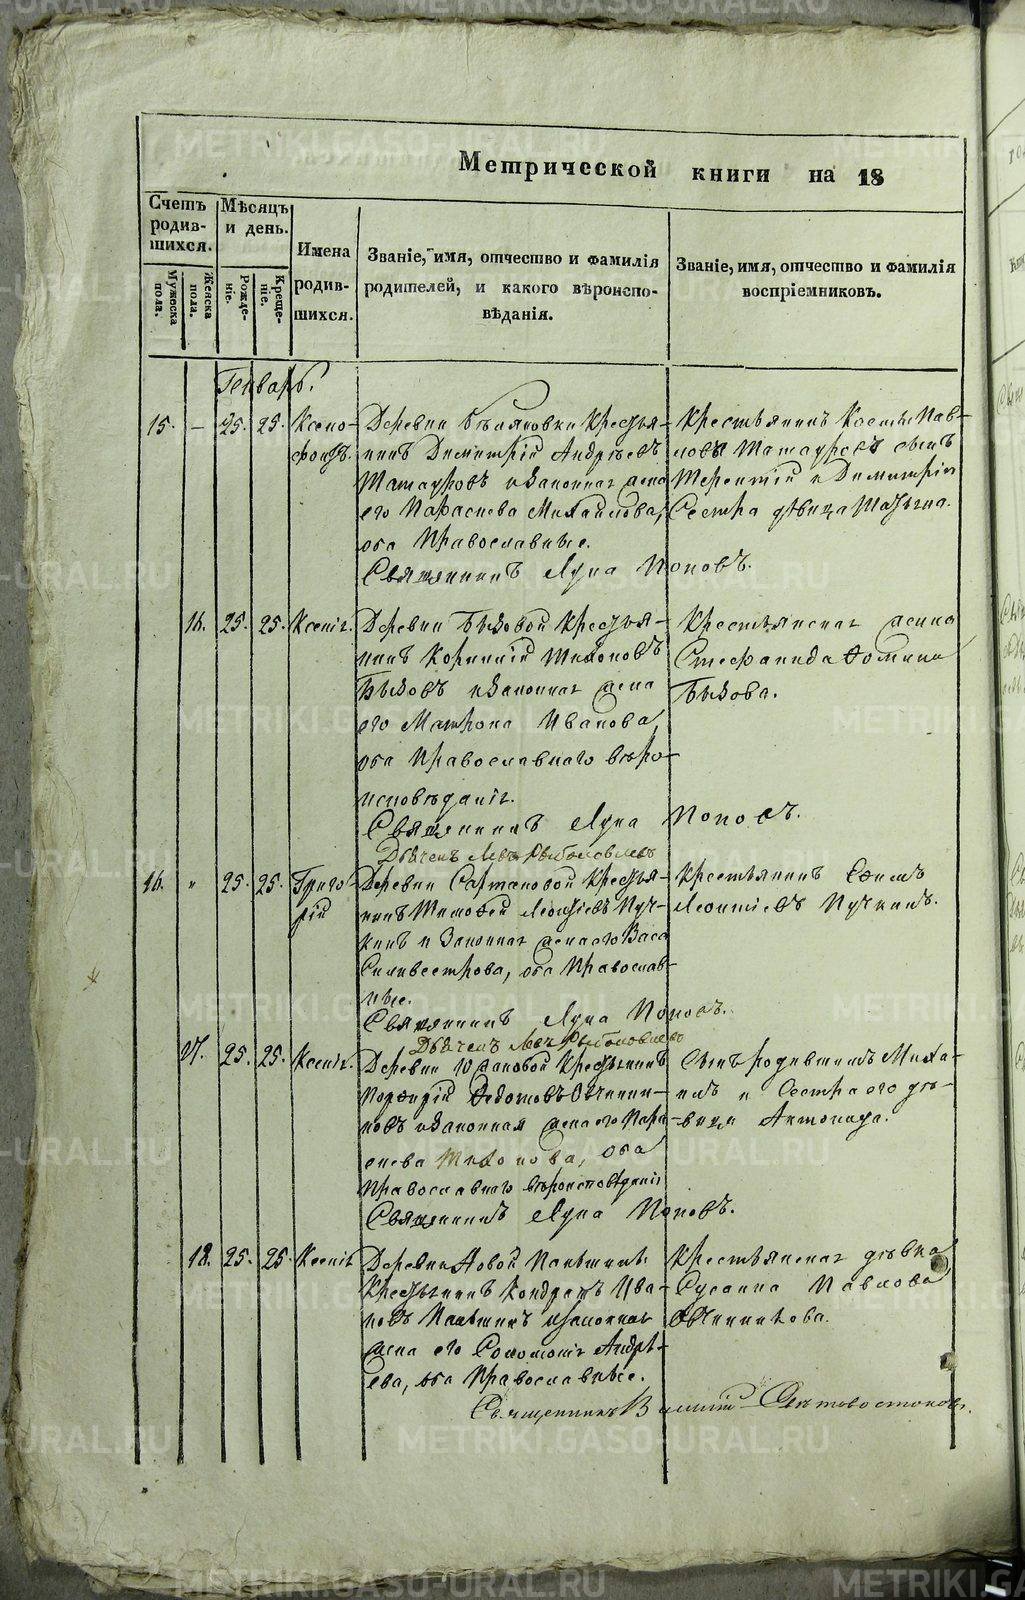 Метрической книги на 18
Счетъ родив-шихся.
Мужеска пола.
Женска пола.
Мѣсяцъ и день.
Рожде-ніе.
Креще-ніе.
Имена родив-шихся.
Званіе, имя, отчество и фамилія родителей, и какого вѣроиспо-вѣданія.
Званіе, имя, отчество и фамилія воспріемниковъ.
Генварь.
15. – 25. 25. Ксено-
фонтъ.
Деревни крестья-
нинъ Димитрій Андреевъ
Матауровъ и законная жена
его Параскева Михайлова,
оба Православные.
Священникъ Лука Поповъ.
Крестьянинъ Косьмы Пав-
ловъ Матауровъ сынъ
Терентій и Димитрія
Сестра дѣвица Татьяна.
16. 25. 25. Ксенія.
Деревни Быковой крестья-
нинъ Корнилій Тихоновъ
Быковъ и законная жена
его Матрона Иванова,
оба Православнаго вѣро-
исповѣданія.
Священникъ Лука Поповъ.
Дьячекъ Левъ Рыболовлевъ
Крестьянская жена
Стефанида Фомина
Быкова.
16. " 25. 25. Григо-
рій
Деревни крестья-
нинъ Тимофей Леонтіевъ Пуч-
кинъ и Законная жена его Васса
Силивестрова, оба Православ-
ные.
Священникъ Лука Поповъ.
Дьячекъ Левъ Рыболовлевъ
Крестьянинъ Ефимъ
Леонтіевъ Пучкинъ.
17. 25. 25. Ксенія.
Деревни Крестьянинъ
Порфирій Федотовъ Овчинни-
ковъ и законная жена его Пара-
скева Тихонова, оба
Православнаго вѣроисповѣданія
Священникъ Лука Поповъ.
Сынъ родившихъ Миха-
илъ и Сестра его дѣ-
вица Антонида.
18. 25. 25. Ксенія
Деревни Новой
Крестьянинъ Кондратъ Ива-
новъ и законная
жена его Соломонія Андре-
ева, оба Православные.
Священникъ
Крестьянская дѣвка
Сусанна Павлова
Овчинникова.
METRIKI.GASO-URAL.RU